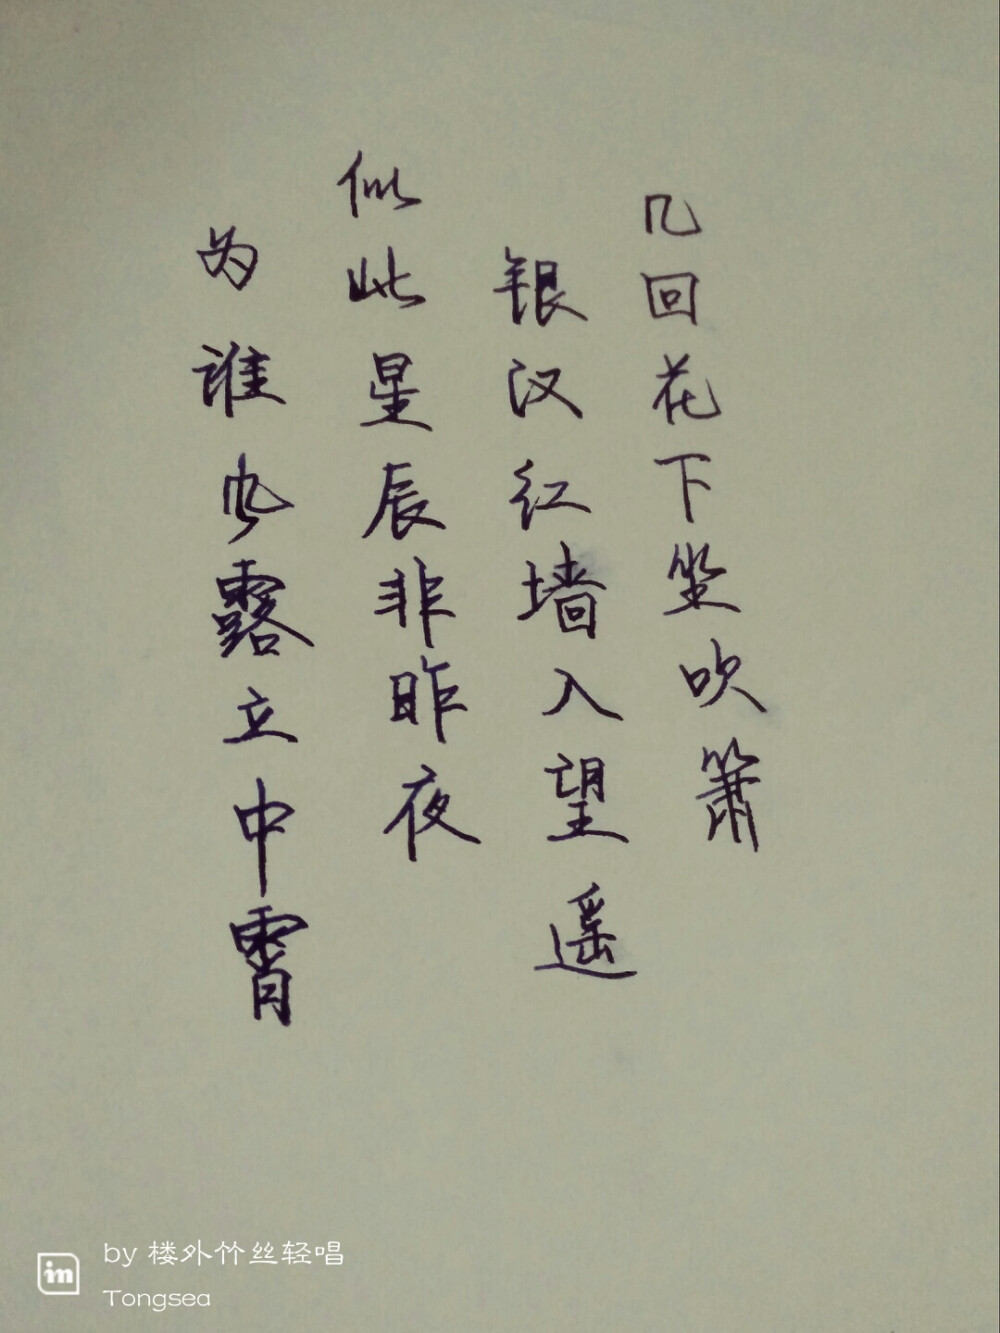 几回花下坐吹箫
银汉红墙入望遥
似此星辰非昨夜
为谁风露立中霄
by 楼外竹丝轻唱
Tongsea